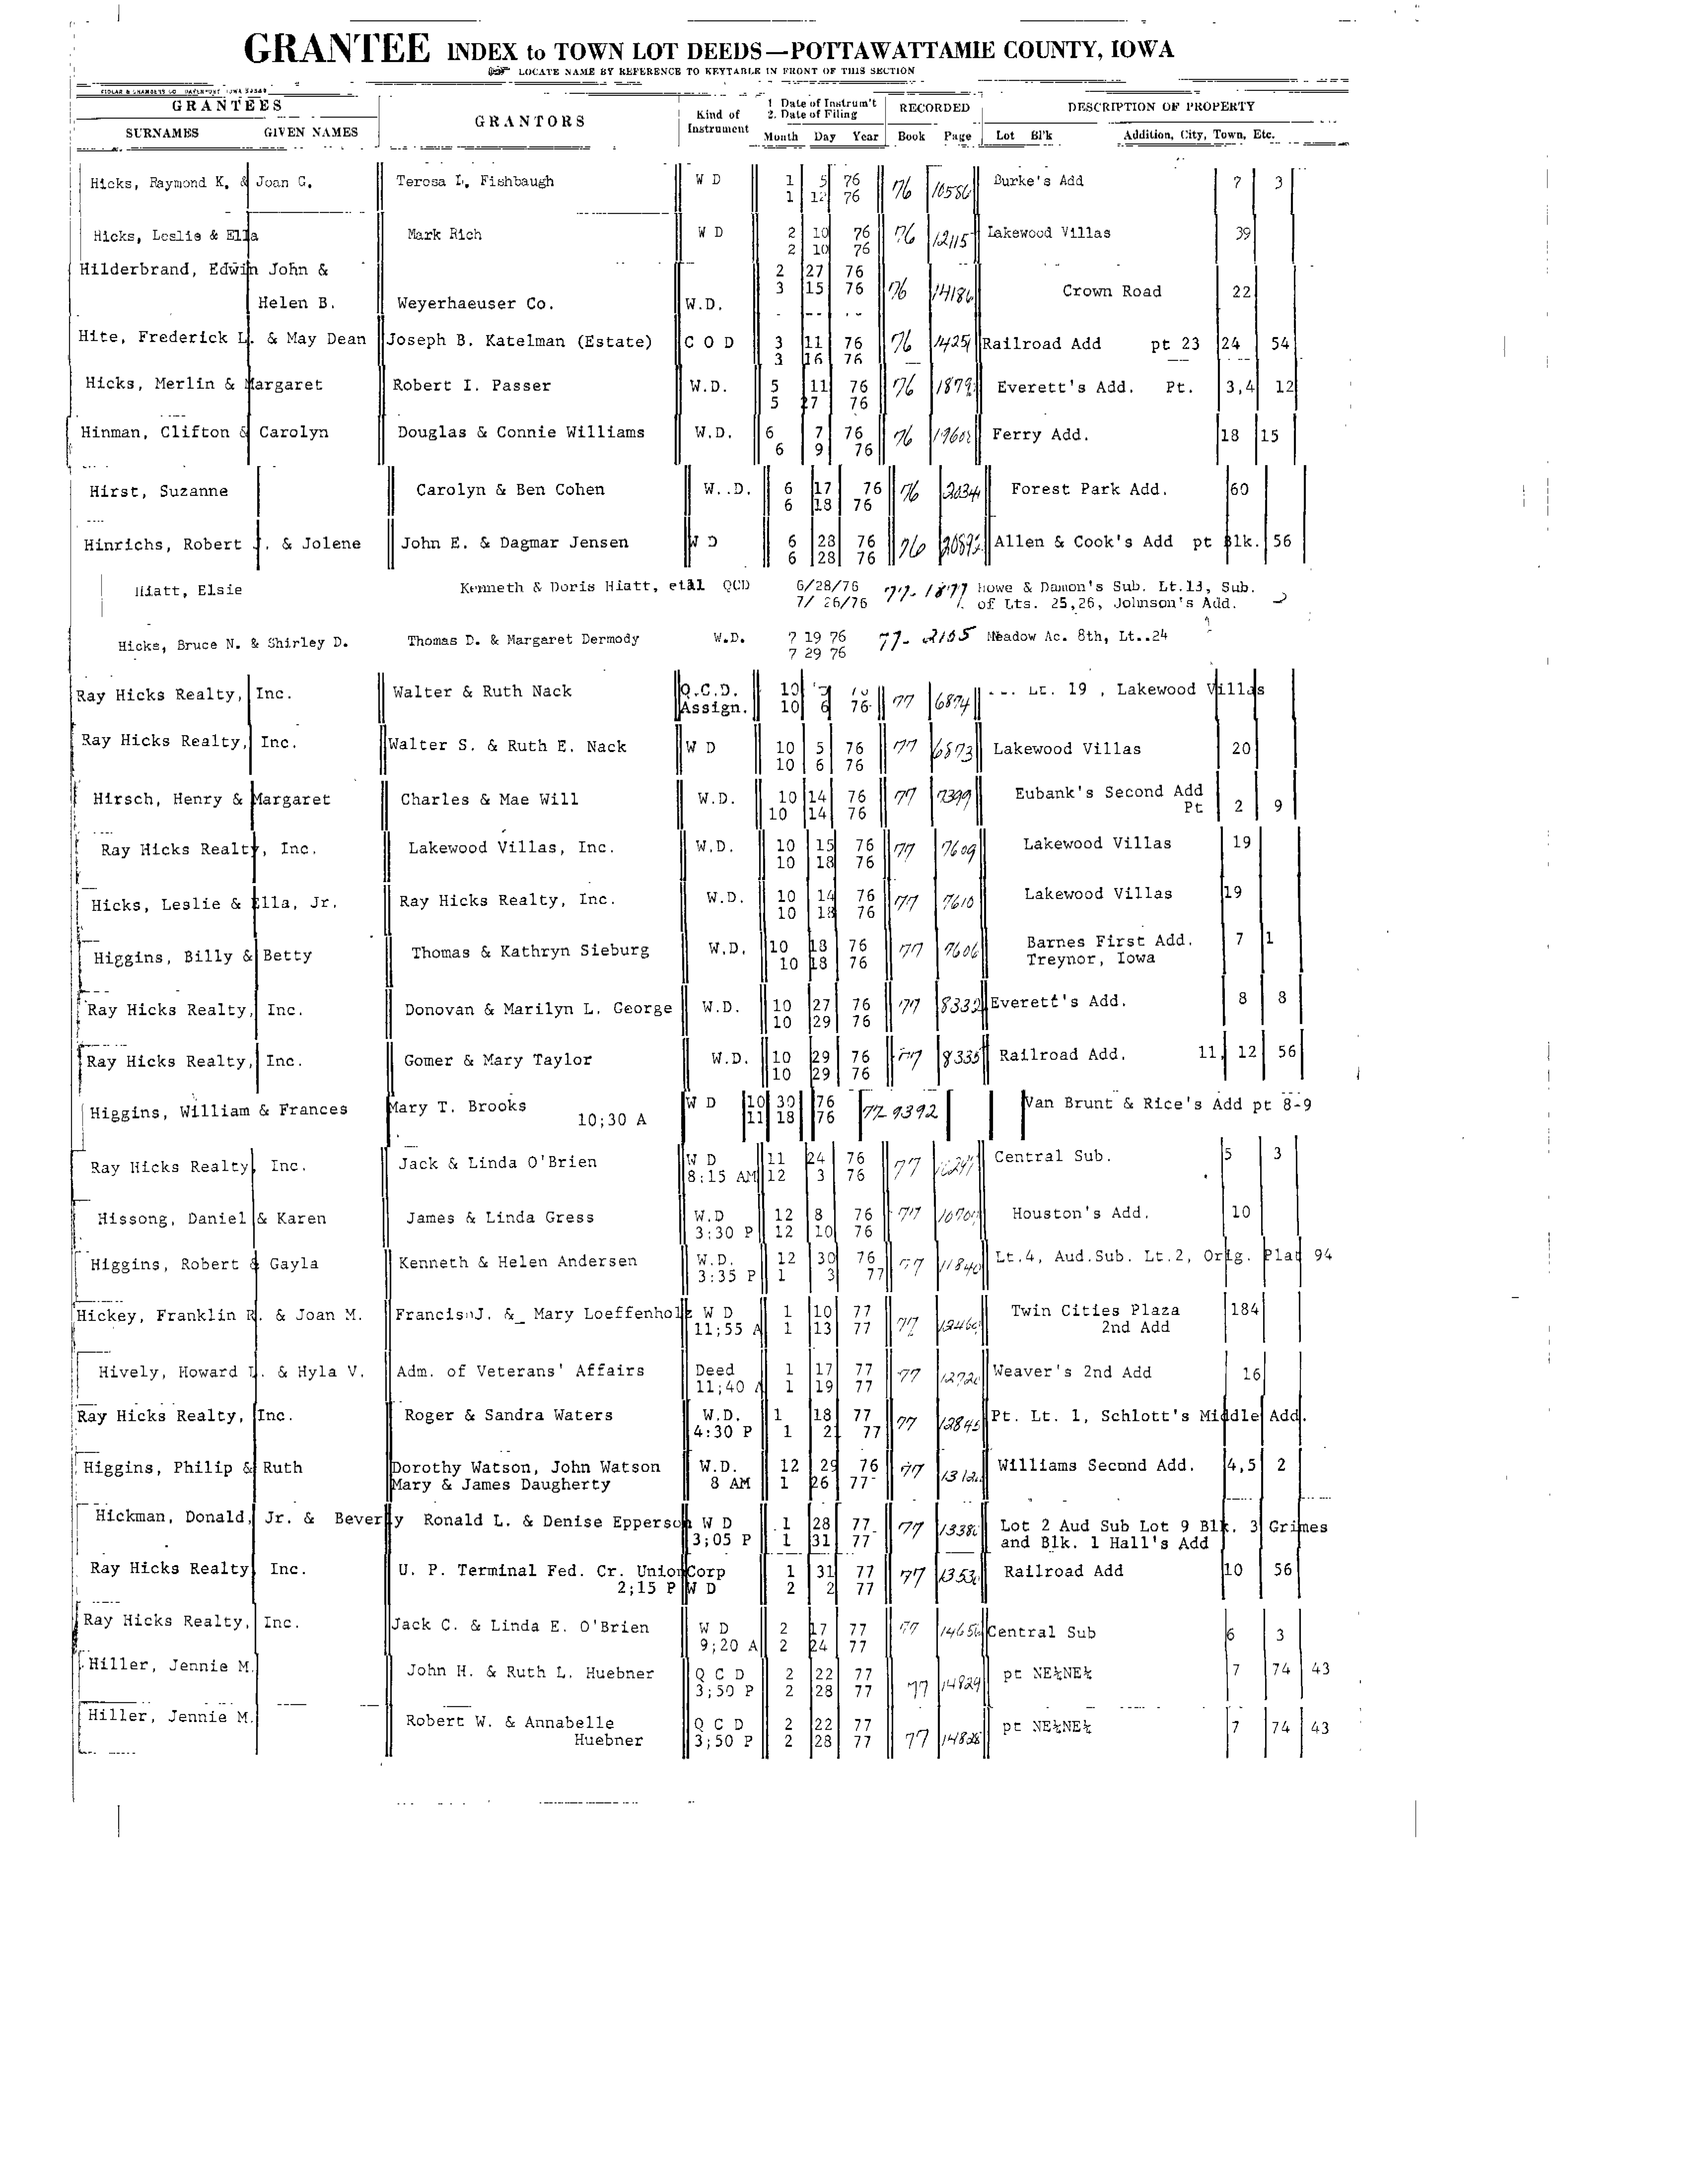 GRANTEE INDEX to TOWN LOT DEEDS—POTTAWATTAMIE COUNTY, IOWA
LOCATE NAME BY REFERENCE TO KEYTABLE IN FRONT OF THIS SECTION
GRANTEES GRANTORS Kind of Instrument 1 Date of Instrum't 2. Date of Filing RECORDED DESCRIPTION OF PROPERTY
SURNAMES GIVEN NAMES Month Day Year Book Page Lot Bl'k Addition, City, Town, Etc.
Hicks, Raymond K. & Joan G. Teresa L. Fishbaugh W D 1 5 76 76 10586 Burke's Add 7 3
1 12 76
Hicks, Leslie & Ella Mark Rich W D 2 10 76 76 12115 Lakewood Villas 39
2 10 76
Hilderbrand, Edwin John & 2 27 76
Helen B. Weyerhaeuser Co. W.D. 3 15 76 76 14186 Crown Road 22
Hite, Frederick L. & May Dean Joseph B. Katelman (Estate) C O D 3 11 76 76 14251 Railroad Add pt 23 24 54
3 16 76
Hicks, Merlin & Margaret Robert I. Passer W.D. 5 11 76 76 Everett's Add. Pt. 3,4 12
5 27 76
Hinman, Clifton & Carolyn Douglas & Connie Williams W.D. 6 7 76 76 Ferry Add. 18 15
6 9 76
Hirst, Suzanne Carolyn & Ben Cohen W..D. 6 17 76 76 Forest Park Add. 60
6 18 76
Hinrichs, Robert J. & Jolene John E. & Dagmar Jensen W D 6 28 76 76 Allen & Cook's Add pt Blk. 56
6 28 76
Hiatt, Elsie Kenneth & Doris Hiatt, etal QCD 6/28/76 77-1877 Howe & Damon's Sub. Lt.13, Sub.
7/ 26/76 of Lts. 25,26, Johnson's Add.
Hicks, Bruce N. & Shirley D. Thomas D. & Margaret Dermody W.D. 7 19 76 77-2105 Meadow Ac. 8th, Lt..24
7 29 76
Ray Hicks Realty, Inc. Walter & Ruth Nack Q.C.D. 10 77 6874 Lt. 19 , Lakewood Villas
Assign. 10 6 76
Ray Hicks Realty, Inc. Walter S. & Ruth E. Nack W D 10 5 76 77 6873 Lakewood Villas 20
10 6 76
Hirsch, Henry & Margaret Charles & Mae Will W.D. 10 14 76 77 7399 Eubank's Second Add
10 14 76 Pt 2 9
Ray Hicks Realty, Inc. Lakewood Villas, Inc. W.D. 10 15 76 77 7609 Lakewood Villas 19
10 18 76
Hicks, Leslie & Ella, Jr. Ray Hicks Realty, Inc. W.D. 10 14 76 77 7610 Lakewood Villas 19
10 18 76
Higgins, Billy & Betty Thomas & Kathryn Sieburg W.D. 10 18 76 77 7606 Barnes First Add. 7 1
10 18 76 Treynor, Iowa
Ray Hicks Realty, Inc. Donovan & Marilyn L. George W.D. 10 27 76 77 8332 Everett's Add. 8 8
10 29 76
Ray Hicks Realty, Inc. Gomer & Mary Taylor W.D. 10 29 76 77 8335 Railroad Add. 11, 12 56
10 29 76
Higgins, William & Frances Mary T. Brooks W D 10 30 76 77-9392 Van Brunt & Rice's Add pt 8-9
10;30 A 11 18 76
Ray Hicks Realty, Inc. Jack & Linda O'Brien W D 11 24 76 77 Central Sub. 5 3
8:15 AM 12 3 76
Hissong, Daniel & Karen James & Linda Gress W.D 12 8 76 77 Houston's Add. 10
3:30 P 12 10 76
Higgins, Robert & Gayla Kenneth & Helen Andersen W.D. 12 30 76 77 11840 Lt.4, Aud.Sub. Lt.2, Orig. Plat 94
3:35 P 1 3 77
Hickey, Franklin R. & Joan M. Francis J. & Mary Loeffenholz W D 1 10 77 77 Twin Cities Plaza 184
11;55 A 1 13 77 2nd Add
Hively, Howard L. & Hyla V. Adm. of Veterans' Affairs Deed 1 17 77 77 Weaver's 2nd Add 16
11;40 A 1 19 77
Ray Hicks Realty, Inc. Roger & Sandra Waters W.D. 1 18 77 77 12845 Pt. Lt. 1, Schlott's Middle Add.
4:30 P 1 21 77
Higgins, Philip & Ruth Dorothy Watson, John Watson W.D. 12 29 76 77 Williams Second Add. 4,5 2
Mary & James Daugherty 8 AM 1 26 77
Hickman, Donald, Jr. & Beverly Ronald L. & Denise Epperson W D 1 28 77 77 Lot 2 Aud Sub Lot 9 Blk. 3 Grimes
3;05 P 1 31 77 and Blk. 1 Hall's Add
Ray Hicks Realty, Inc. U. P. Terminal Fed. Cr. Union Corp 1 31 77 77 13530 Railroad Add 10 56
2;15 P W D 2 2 77
Ray Hicks Realty, Inc. Jack C. & Linda E. O'Brien W D 2 17 77 77 14656 Central Sub 6 3
9;20 A 2 24 77
Hiller, Jennie M. John H. & Ruth L. Huebner Q C D 2 22 77 77 14829 pt NE¼NE¼ 7 74 43
3;50 P 2 28 77
Hiller, Jennie M. Robert W. & Annabelle Q C D 2 22 77 77 14828 pt NE¼NE¼ 7 74 43
Huebner 3;50 P 2 28 77